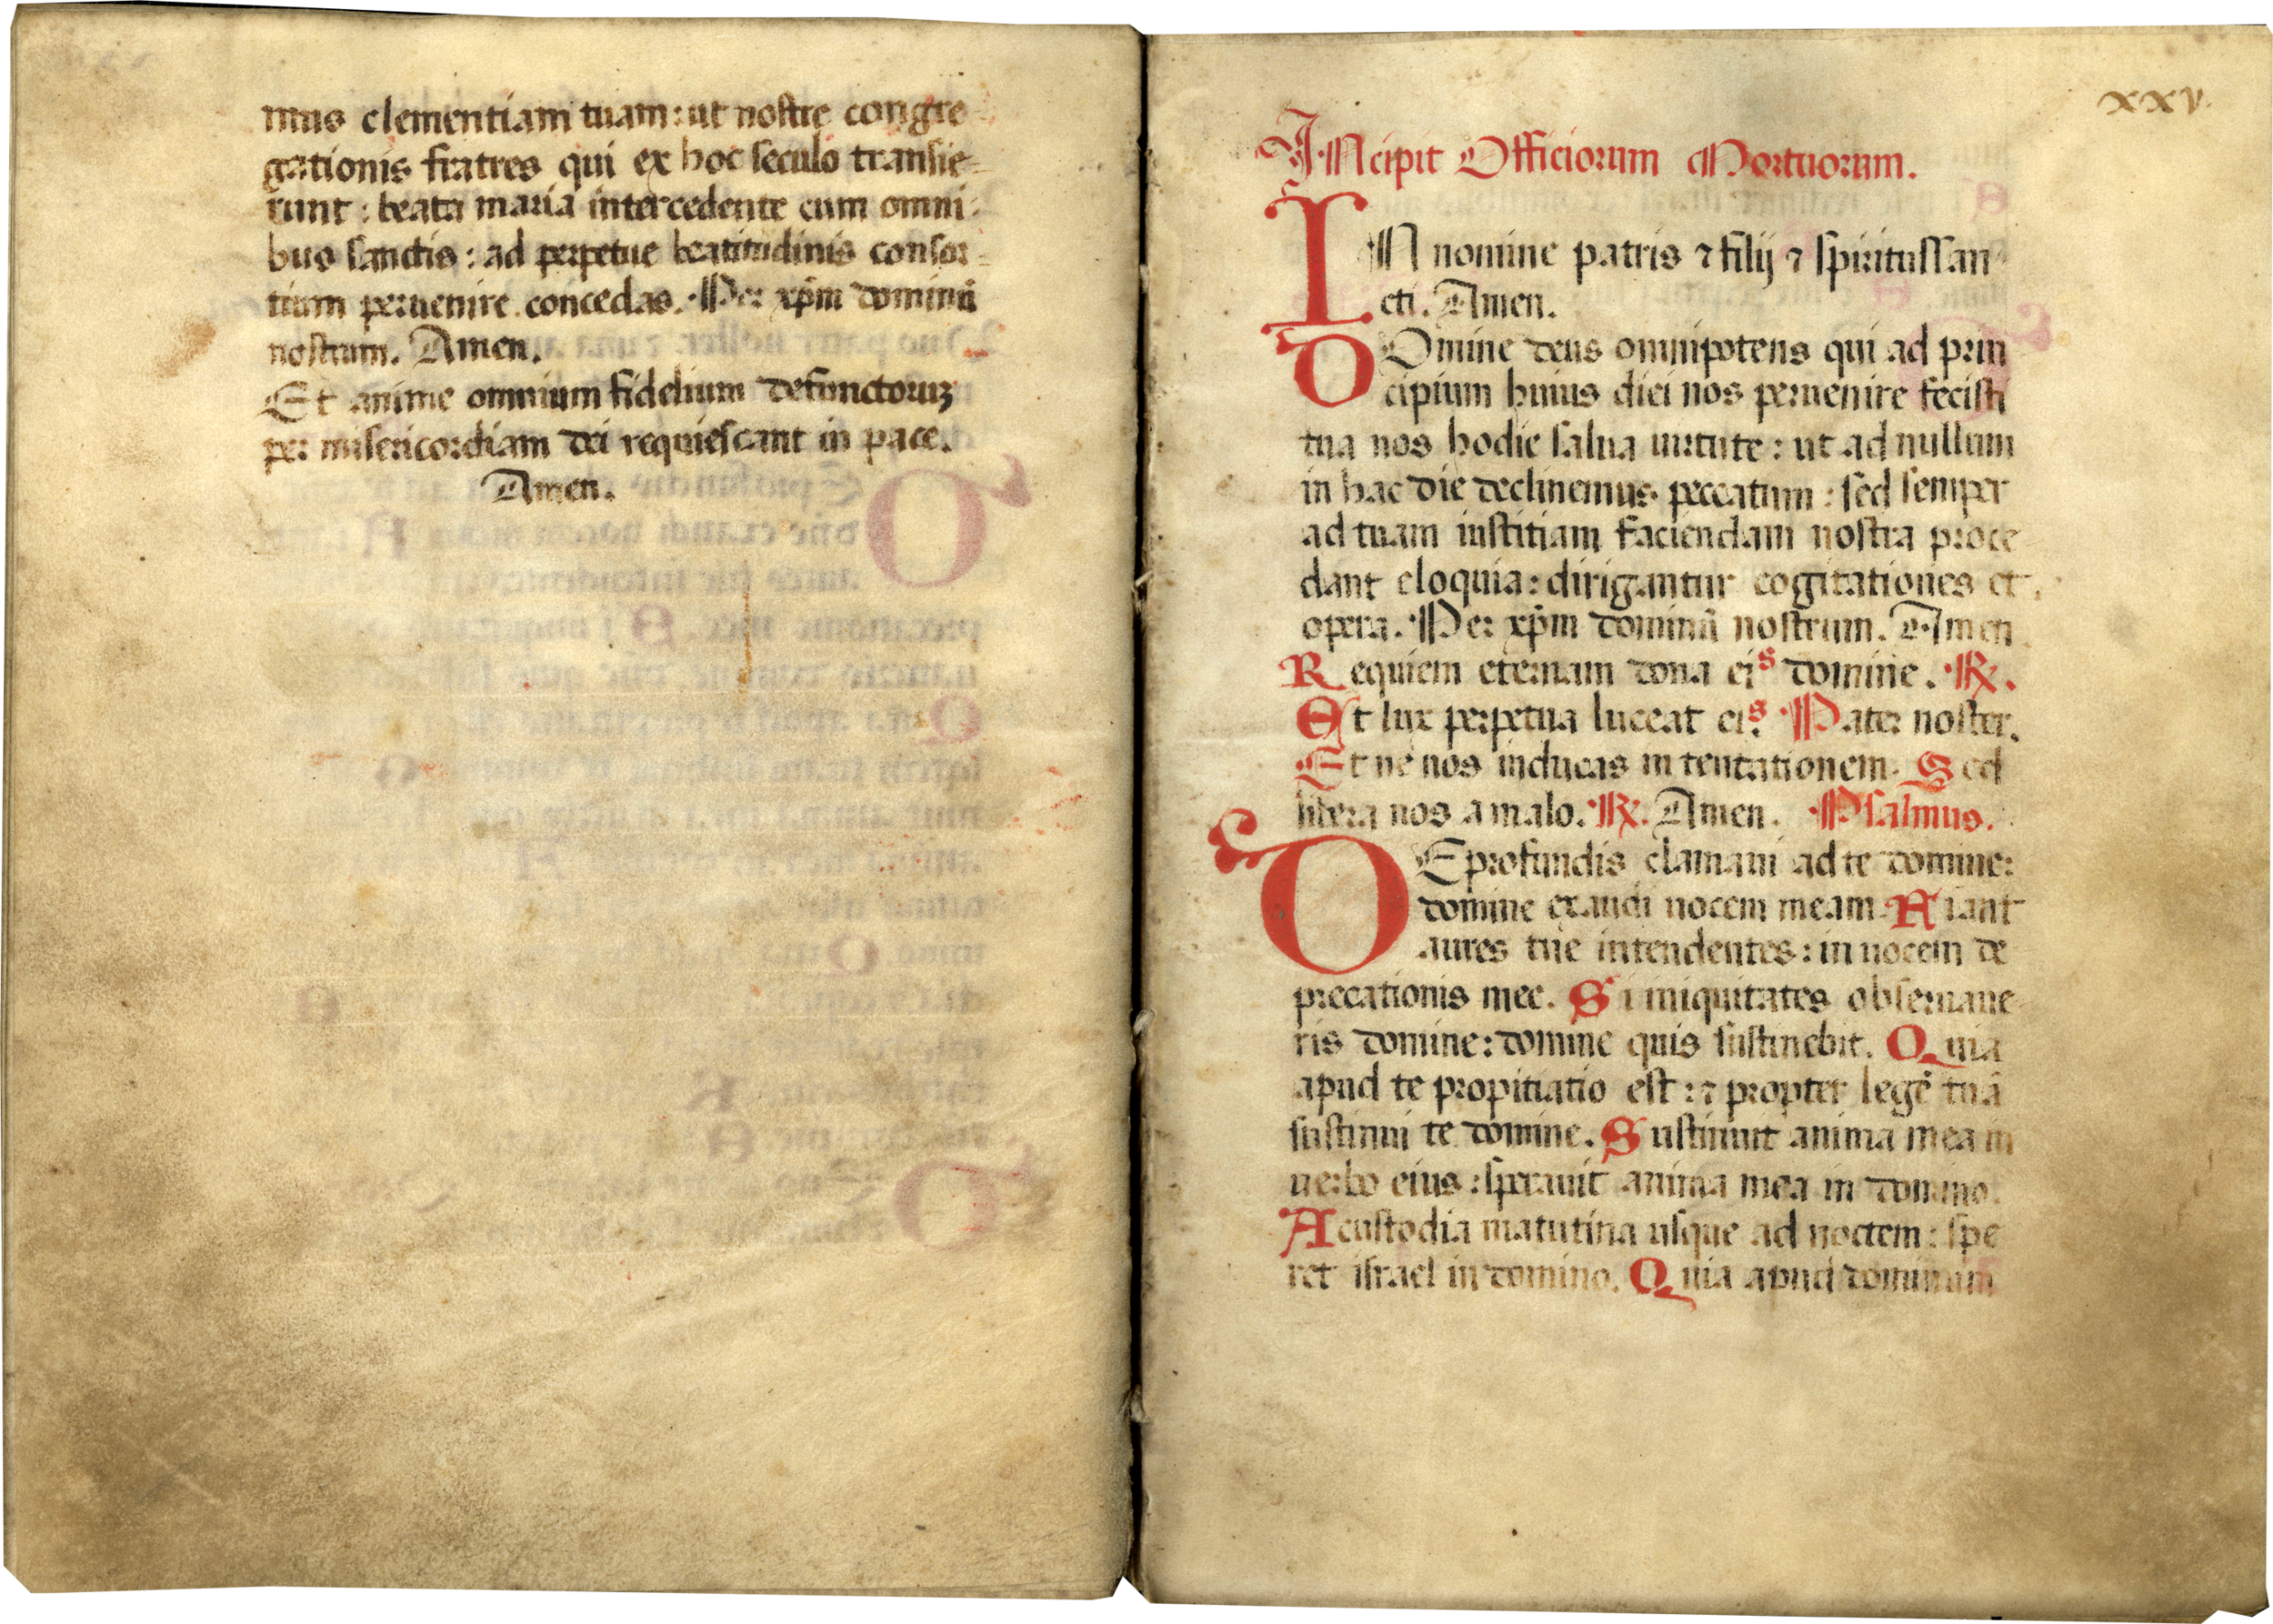 mus clementiam tuam: ut nostre congre
gationis fratres qui ex hoc seculo transie=
runt: beata maria intercedente cum omni=
bus sanctis: ad perpetue beatitudinis consor=
tium peruenire concedas. Per xp̄m dominū
nostrum. Amen.
Et anime omnium fidelium defunctoruꝫ
per misericordiam dei requiescant in pace.
Amen.
xxv.
INcipit Officiorum Mortuorum.
IN nomine patris ⁊ filij ⁊ spiritussan
cti. Amen.
DOmine deus omnipotens qui ad prin
cipium huius diei nos peruenire fecisti
tua nos hodie salua uirtute: ut ad nullum
in hac die declinemus peccatum: sed semper
ad tuam iustitiam faciendam nostra proce
dant eloquia: dirigantur cogitationes et
opera. Per xp̄m dominū nostrum. Amen
Requiem eternam dona eis domine. ℟.
Et lux perpetua luceat eis. Pater noster.
Et ne nos inducas in tentationem. Sed
libera nos a malo. ℟. Amen. Psalmus.
DE profundis clamaui ad te domine:
domine exaudi uocem meam. Fiant
aures tue intendentes: in uocem de
precationis mee. Si iniquitates obseruaue
ris domine: domine quis sustinebit. Quia
apud te propitiatio est: ⁊ propter legē tuā
sustinui te domine. Sustinuit anima mea in
uerbo eius: sperauit anima mea in domino.
A custodia matutina usque ad noctem: spe
ret israel in domino. Quia apud dominum